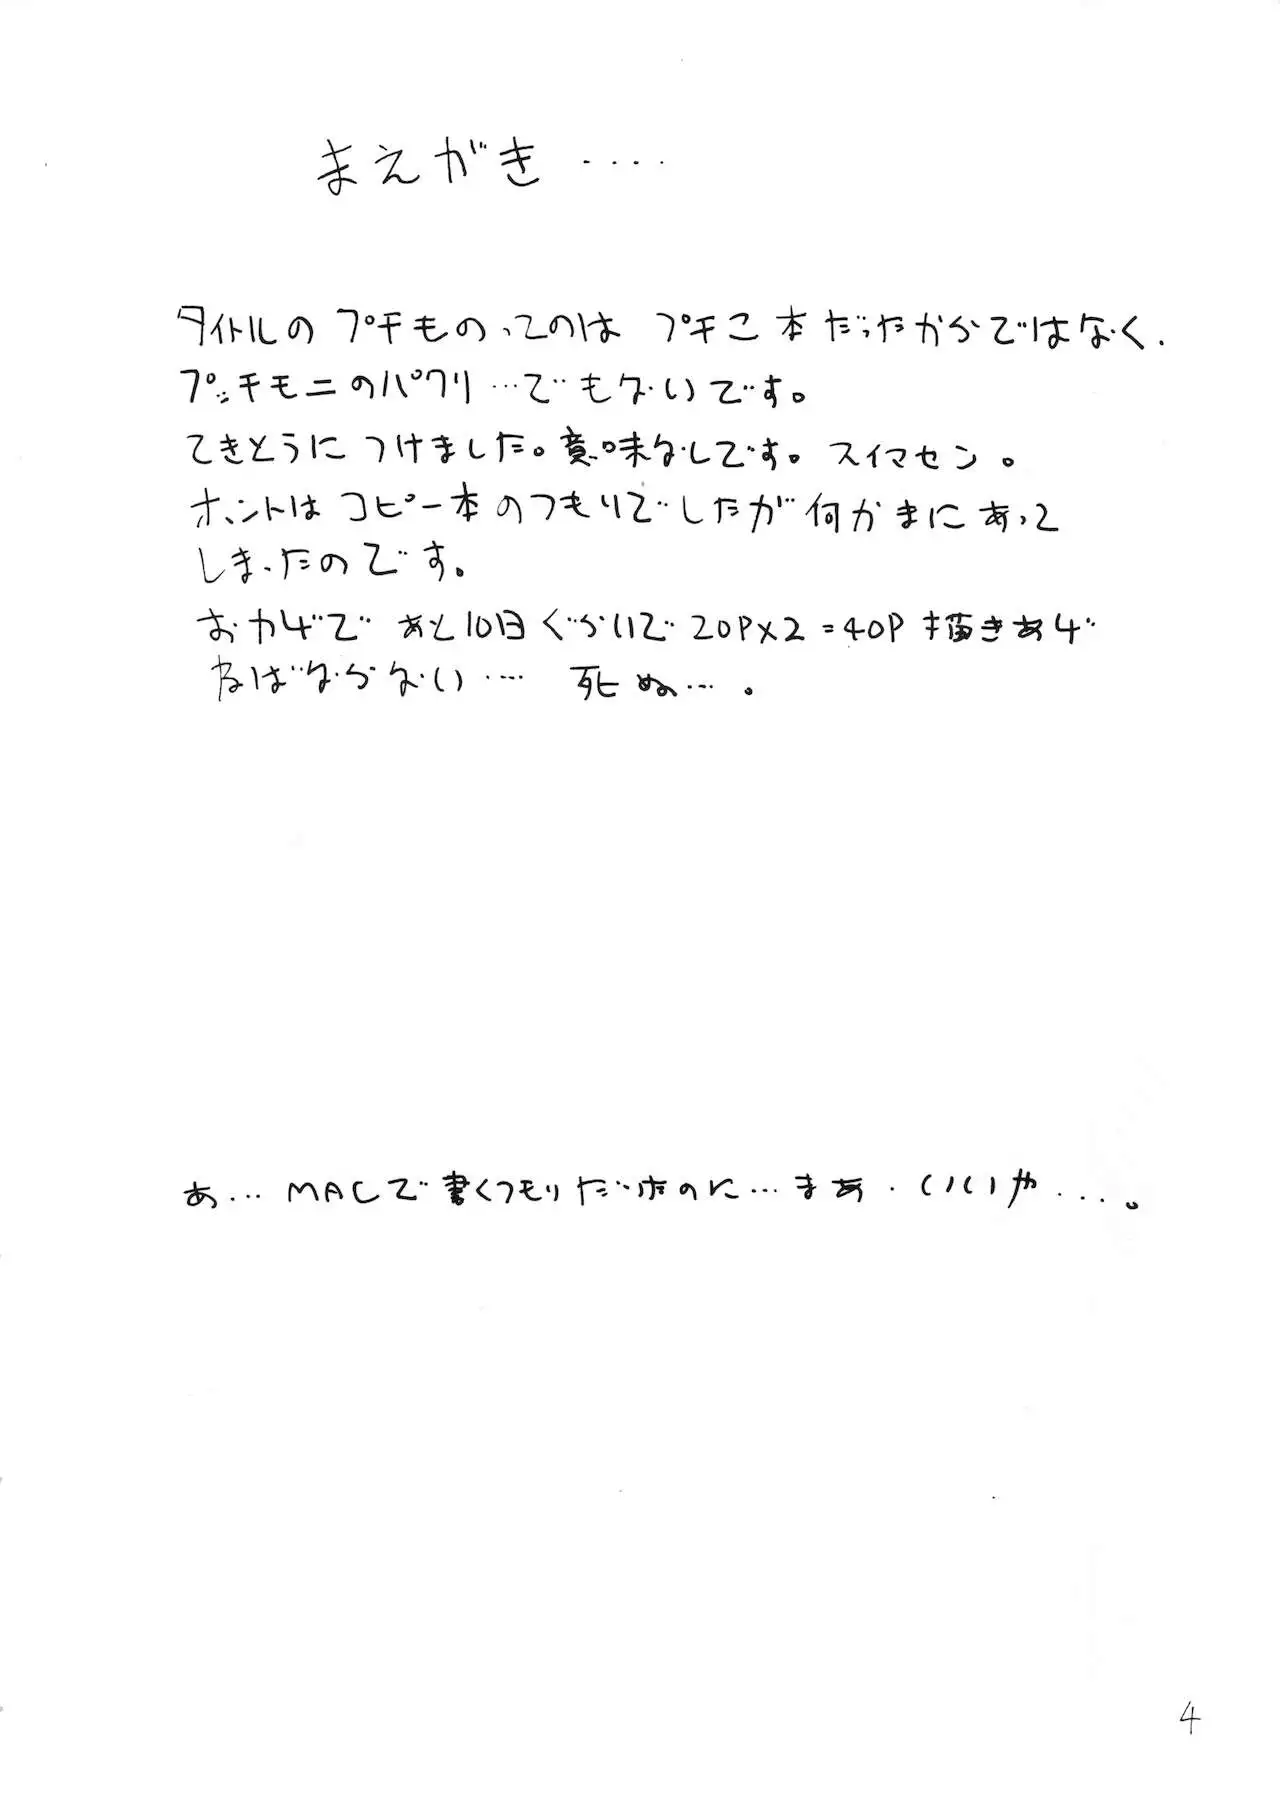 まえがき‥‥
タイトルの プチものってのは プチこ本だったからではなく、
プッチモニのパクリ…でもないです。
てきとうにつけました。意味なしです。スイマセン。
ホントはコピー本のつもりでしたが何かまにあって
しまったのです。
おかげで あと10日ぐらいで 20P×2=40P 描きあげ
ねばならない‥‥ 死ぬ…。
あ… MACで書くつもりだったのに…まあ、いいや‥‥。
4